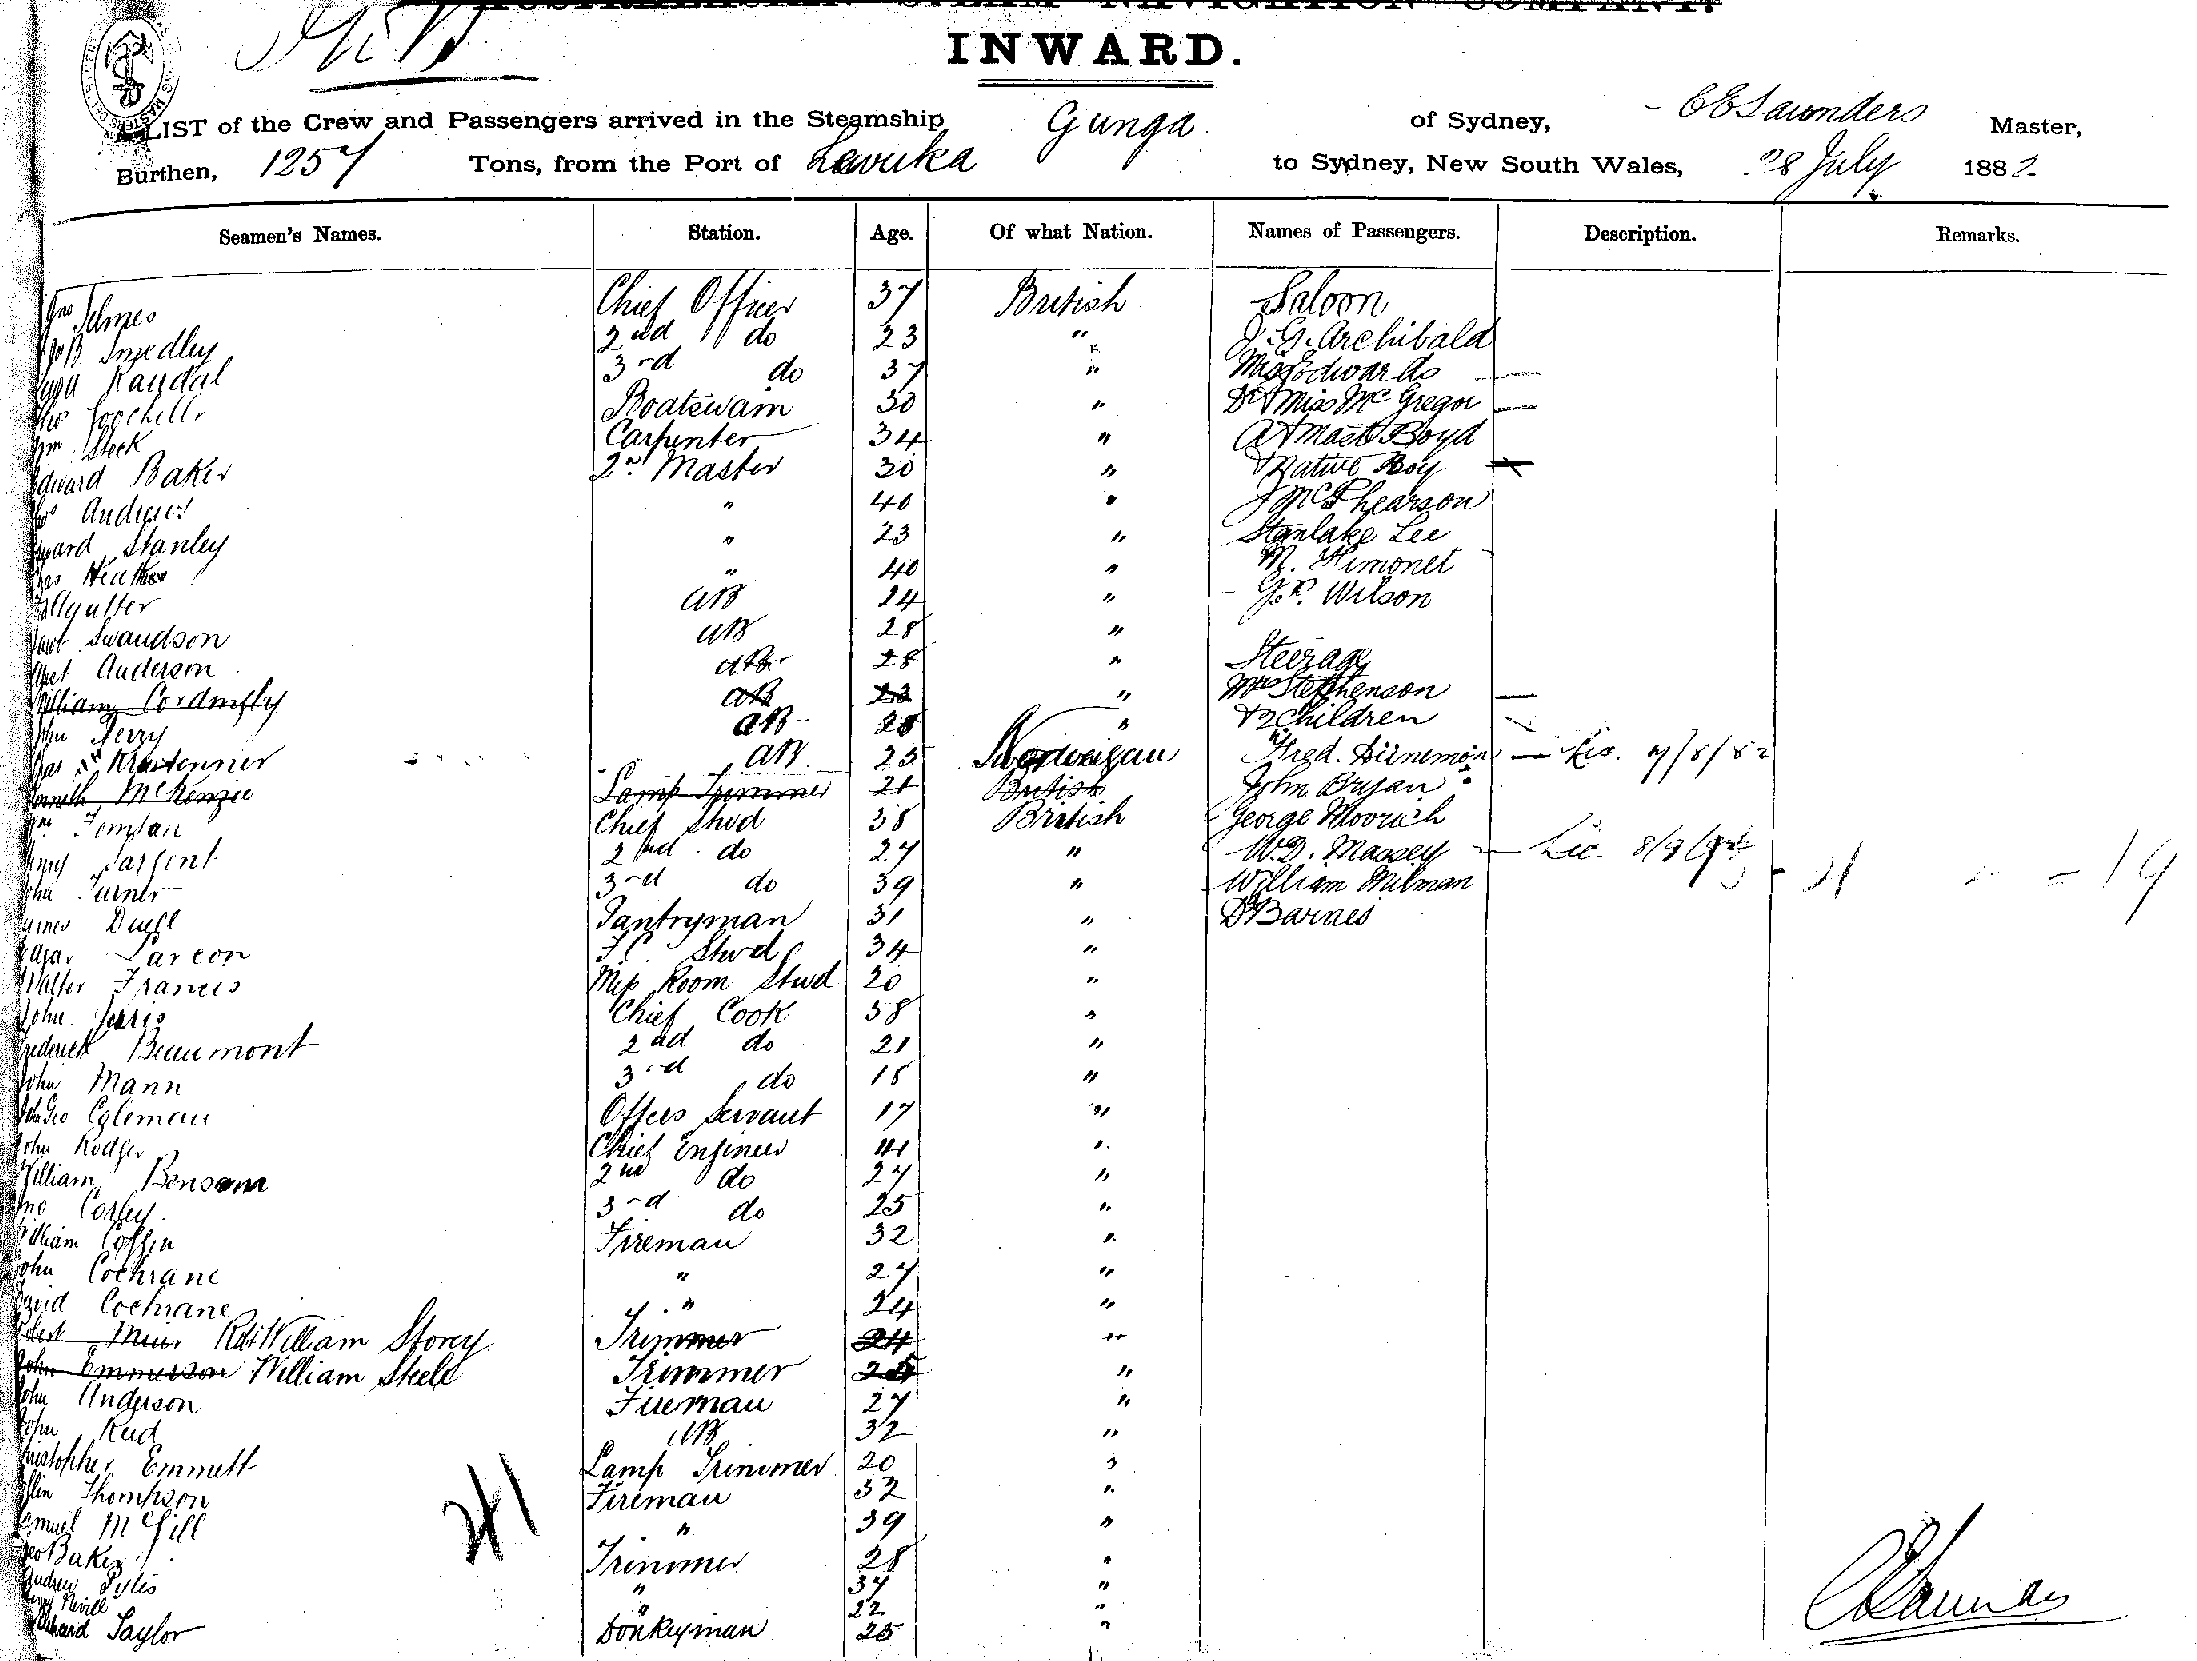 INWARD.
LIST of the Crew and Passengers arrived in the Steamship Gunga of Sydney, CE Saunders Master,
Burthen, 1257 Tons, from the Port of Levuka to Sydney, New South Wales, 28 July 1882
Seamen's Names. Station. Age. Of what Nation. Names of Passengers. Description. Remarks.
Chief Officer 37 British Saloon
Smedley 2nd do 23 " J. G. Archibald
Randal 3rd do 37 " Miss Edwards
Boatswain 30 " Dr & Miss McGregor
Steek Carpenter 34 " & Mast Boyd
Edward Baker 2r Master 30 " & Native Boy
Andrews " 40 " J McPhearson
Stanley " 23 " Stanlake Lee
" 40 " M. Himonet
Agutter AB 24 " Wilson
Swandson AB 28 "
Anderson AB 28 " Steerage
William AB 23 " Mrs Stephenson
John AB 28 " & 2 Children
AB 25 Norweigan Fred. - Lic. 9/8/82
Kenneth McKenzie Lamp Trimmer 21 British John Bryan
Chief Stwd 38 British George
Sargent 2nd do 27 " W. D. Massey - Lic. 8/9/
John Turner 3rd do 39 " William Milman
James Duell Pantryman 31 " D Barnes
Stwd 34 "
Walter Francis Mess Room Stwd 20 "
John Chief Cook 38 "
Frederick Beaumont 2nd do 21 "
John Mann 3rd do 18 "
Geo Coleman Offers Servant 17 "
John Rodger Chief Engineer 41 "
William Bensom 2nd do 27 "
3rd do 25 "
William Coffin Fireman 32 "
John Cochrane " 27 "
David Cochrane " 24 "
Robert Muir William Storey Trimmer 24 "
John Emmerson William Steele Trimmer "
John Anderson Fireman 27 "
John Reid AB 32 "
Christopher Emmett Lamp Trimmer 20 "
Thompson Fireman 32 "
Samuel McGill " 39 "
Geo Baker Trimmer 28 "
Andrew " 37 "
Nevill " 22 "
Richard Taylor Donkeyman 25 "
41
CE Saunders